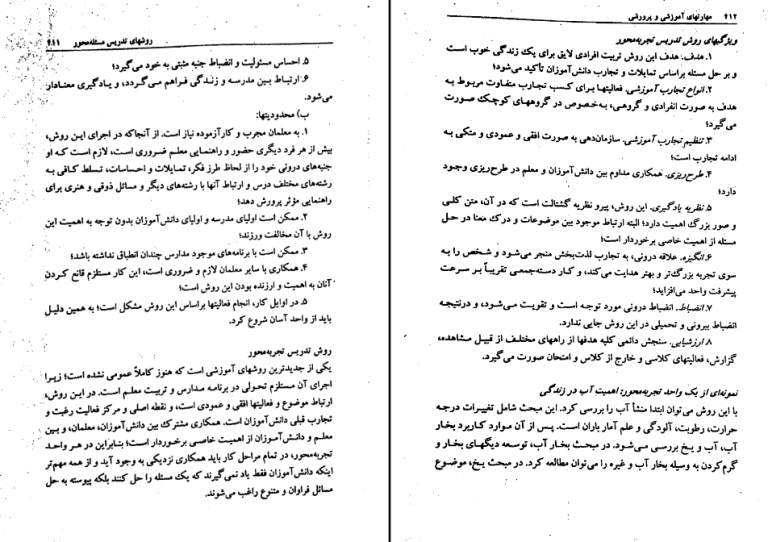 روشهای تدریس مسئله‌محور ۴۱۱
۵. احساس مسئولیت و انضباط جنبه مثبتی به خود می‌گیرد؛
۶. ارتباط بین مدرسه و زندگی فراهم می‌گردد، و یادگیری معنادار
می‌شود.
ب) محدودیتها:
۱. به معلمان مجرب و کارآزموده نیاز است. از آنجاکه در اجرای این روش،
بیش از هر فرد دیگری حضور و راهنمایی معلم ضروری است، لازم است که او
جنبه‌های درونی خود را از لحاظ طرز فکر، تمایلات و احساسات، تسلط کافی به
رشته‌های مختلف درس و ارتباط آنها با رشته‌های دیگر و مسائل ذوقی و هنری برای
راهنمایی مؤثر پرورش دهد؛
۲. ممکن است اولیای مدرسه و اولیای دانش‌آموزان بدون توجه به اهمیت این
روش با آن مخالفت ورزند؛
۳. ممکن است با برنامه‌های موجود مدارس چندان انطباق نداشته باشد؛
۴. همکاری با سایر معلمان لازم و ضروری است، این کار مستلزم قانع کردن
آنان به اهمیت و ارزنده بودن این روش است؛
۵. در اوایل کار، انجام فعالیتها براساس این روش مشکل است؛ به همین دلیل
باید از واحد آسان شروع کرد.
روش تدریس تجربه‌محور
یکی از جدیدترین روشهای آموزشی است که هنوز کاملاً عمومی نشده است؛ زیرا
اجرای آن مستلزم تحولی در برنامه مدارس و تربیت معلم است. در این روش،
ارتباط موضوع و فعالیتها افقی و عمودی است، و نقطه اصلی و مرکز فعالیت رغبت و
تجارب قبلی دانش‌آموزان است. همکاری مشترک بین دانش‌آموزان، معلمان، و بین
معلم و دانش‌آموزان از اهمیت خاصی برخوردار است؛ بنابراین در هر واحد
تجربه‌محور، در تمام مراحل کار باید همکاری نزدیکی به وجود آید و از همه مهم‌تر
اینکه دانش‌آموزان فقط یاد نمی‌گیرند که یک مسئله را حل کنند بلکه پیوسته به حل
مسائل فراوان و متنوع راغب می‌شوند.
۴۱۲ مهارتهای آموزشی و پرورشی
ویژگیهای روش تدریس تجربه‌محور
۱. هدف. هدف این روش تربیت افرادی لایق برای یک زندگی خوب است
و بر حل مسئله براساس تمایلات و تجارب دانش‌آموزان تأکید می‌شود؛
۲. انواع تجارب آموزشی. فعالیتها برای کسب تجارب متفاوت مربوط به
هدف به صورت انفرادی و گروهی، بخصوص در گروههای کوچک صورت
می‌گیرد؛
۳. تنظیم تجارب آموزشی. سازمان‌دهی به صورت افقی و عمودی و متکی به
ادامه تجارب است؛
۴. طرح‌ریزی. همکاری مداوم بین دانش‌آموزان و معلم در طرح‌ریزی وجود
دارد؛
۵. نظریه یادگیری. این روش، پیرو نظریه گشتالت است که در آن، متن کلی
و صور بزرگ اهمیت دارد؛ البته ارتباط موجود بین موضوعات و درک معنا در حل
مسئله از اهمیت خاصی برخوردار است؛
۶. انگیزه. علاقه درونی، به تجارب لذت‌بخش منجر می‌شود و شخص را به
سوی تجربه بزرگ‌تر و بهتر هدایت می‌کند، و کار دسته‌جمعی تقریباً بر سرعت
پیشرفت واحد می‌افزاید؛
۷. انضباط. انضباط درونی مورد توجه است و تقویت می‌شود، و درنتیجه
انضباط بیرونی و تحمیلی در این روش جایی ندارد.
۸. ارزشیابی. سنجش دائمی کلیه هدفها از راههای مختلف از قبیل مشاهده،
گزارش، فعالیتهای کلاسی و خارج از کلاس و امتحان صورت می‌گیرد.
نمونه‌ای از یک واحد تجربه‌محور: اهمیت آب در زندگی
با این روش می‌توان ابتدا منشأ آب را بررسی کرد. این مبحث شامل تغییرات درجه
حرارت، رطوبت، آلودگی و علم آمار باران است. پس از آن موارد کاربرد بخار
آب، آب و یخ بررسی می‌شود. در مبحث بخار آب، توسعه دیگهای بخار و
گرم‌کردن به وسیله بخار آب و غیره را می‌توان مطالعه کرد. در مبحث یخ، موضوع